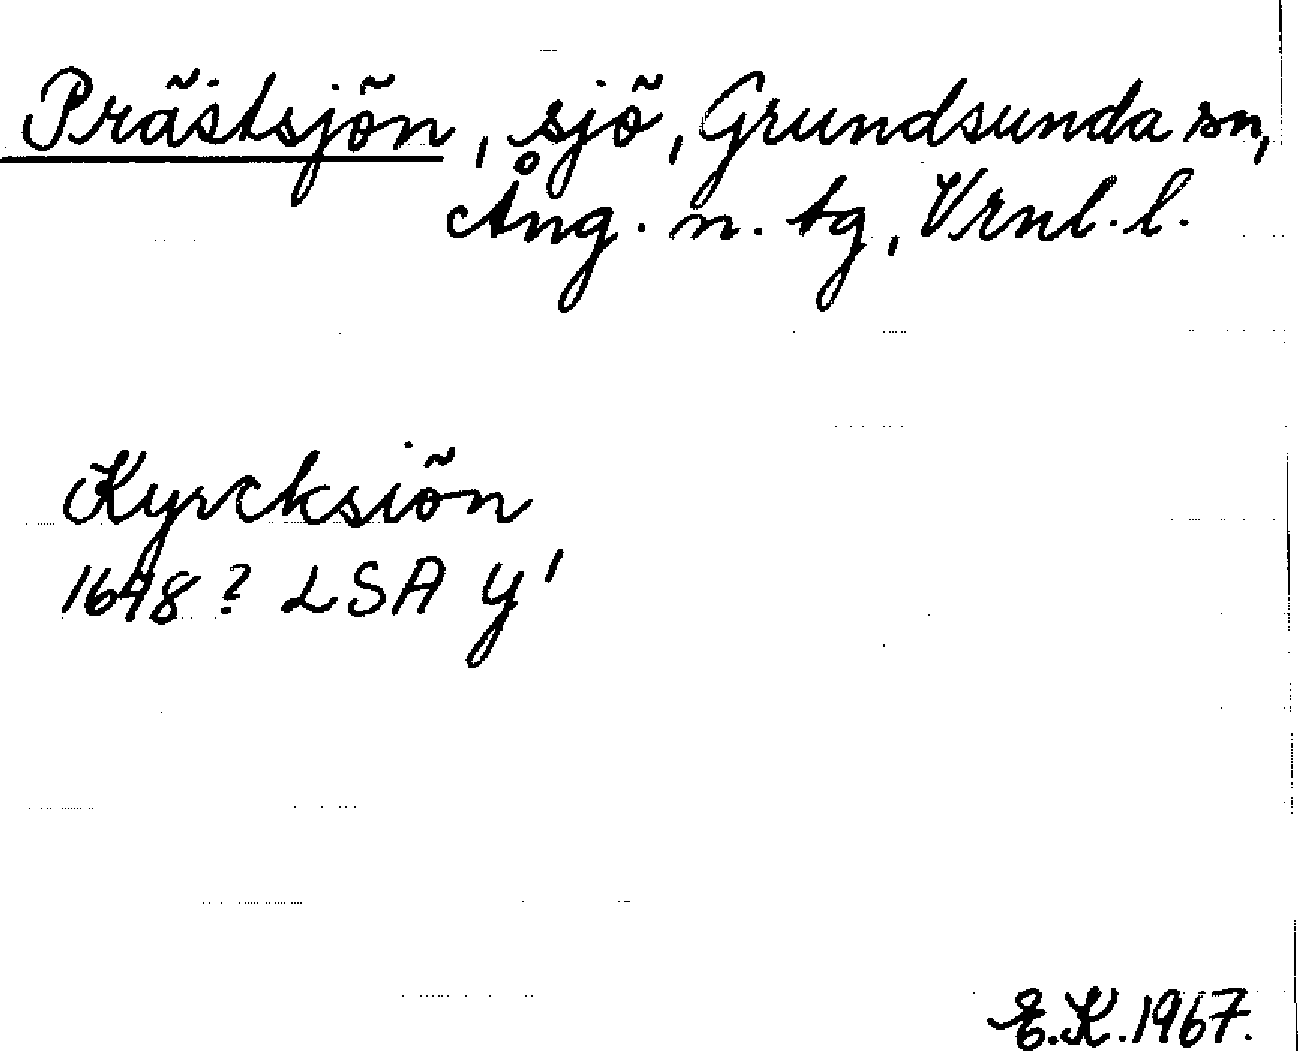 Prästsjön, sjö, Grundsunda sn,
Ång. n. tg, Vrnl. l.
Kyrcksiön
1648? LSA Y'
E.K. 1967.